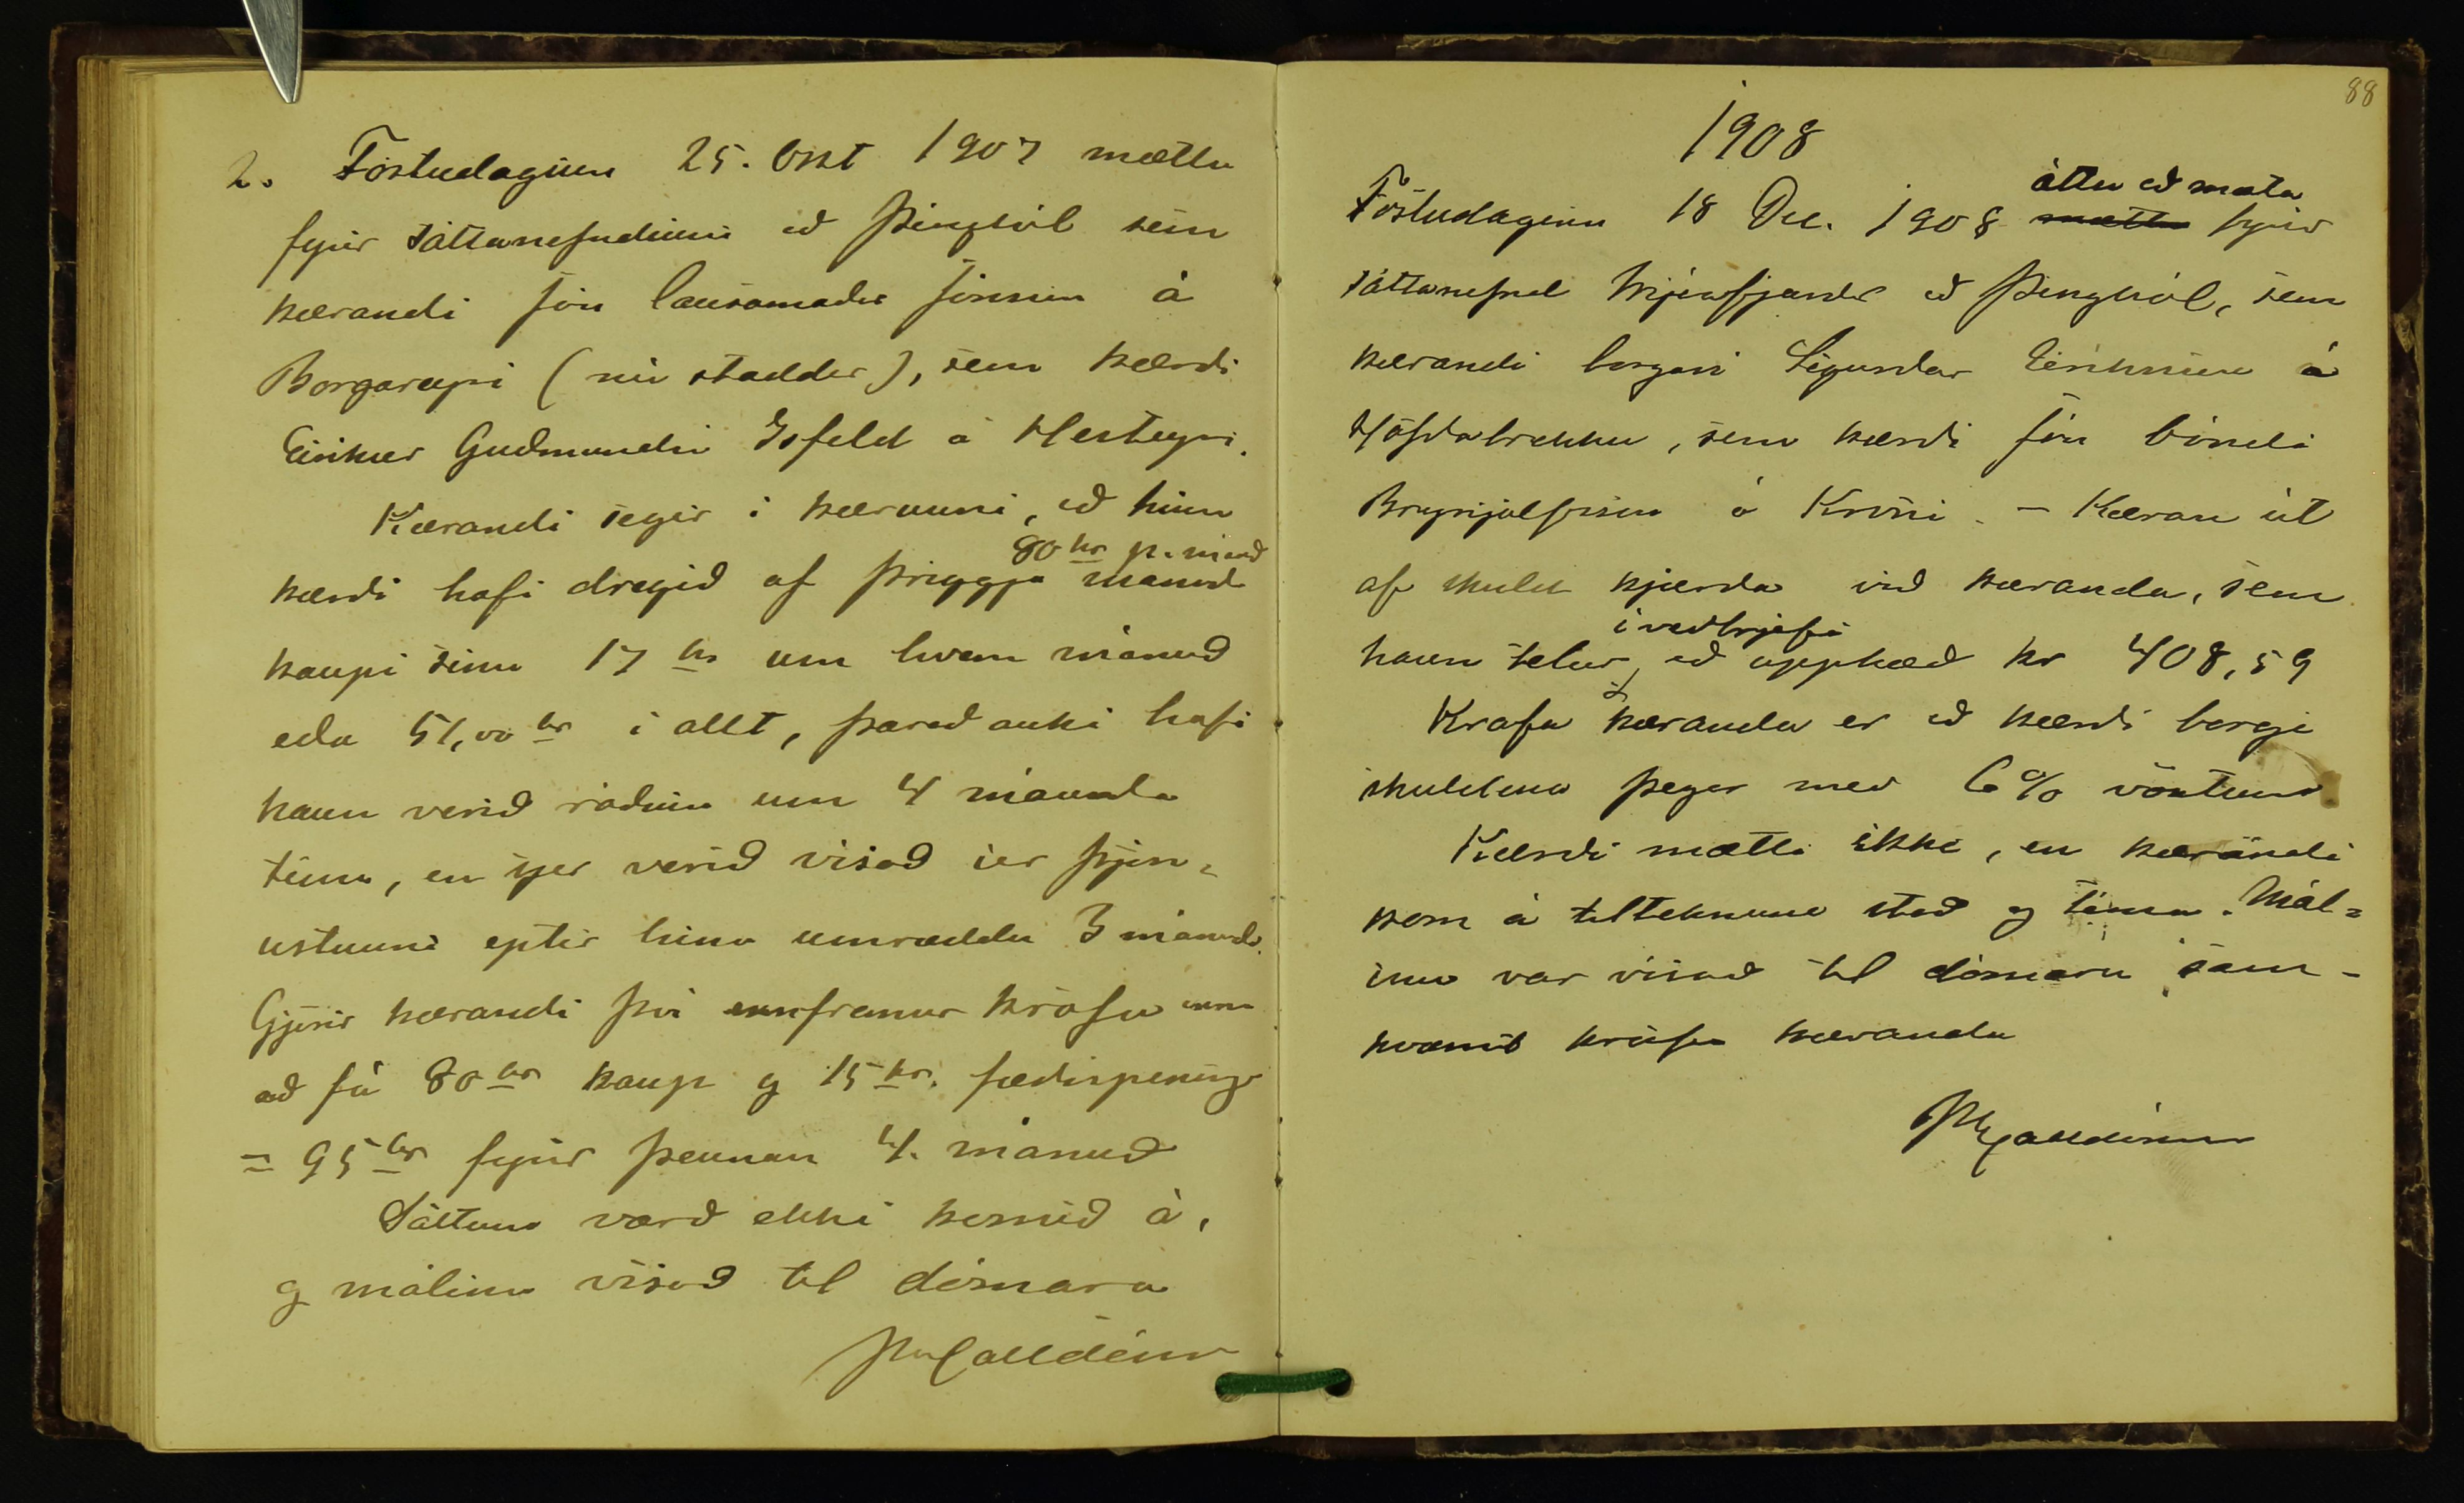 2. Föstudaginn 25. Okt 1907 mættu
fyrir sáttanefndinni að Þinghól sem
kærandi Jón lausamaður Jónsson á
Borgareyri (nú staddur), sem kærði
Eiríkur Guðmundur Isfeld á Hesteyri.
Kærandi segir í kærunni, að hinn
80 kr p. mánuð
kærði hafi dregið af þriggja mánuða
kaupi sínu 17 kr um hvern mánuð
eða 51,00 kr í allt, þarað auki hafi
hann verið ráðinn um 4 mánaða
tíma, en sjer verið vísað úr þjón=
ustunni eptir hina umræddu 3 mánuði.
Gjörir kærandi því ennfremur kröfu um
að fá 80 kr kaup og 15 kr. fæðispeninga
= 95 kr fyrir þennan 4. mánuð
Sáttum varð ekki komið á,
og málinu vísað til dómara
88
1908
áttu að mæta
Föstudaginn 18 Dec. 1908 mættu fyrir
sáttanefnd Mjóafjarðar að Þinghól, sem
kærandi borgari Sigurður Eiríksson á
Höfðabrekku, sem kærði Jón bóndi
Brynjólfsson á Króki. – Kæran út
af skuld kjærða við kæranda, sem
í veðbrjefi
hann telur, að upphæð kr 408,59
Krafa kæranda er að kærði borgi
skuldina þegar með 6% vöxtum
Kærði mætti ekki, en kærandi
kom á tilteknum stað og tíma. Mál=
inu var vísað til dómara sam-
kvæmt kröfu kæranda